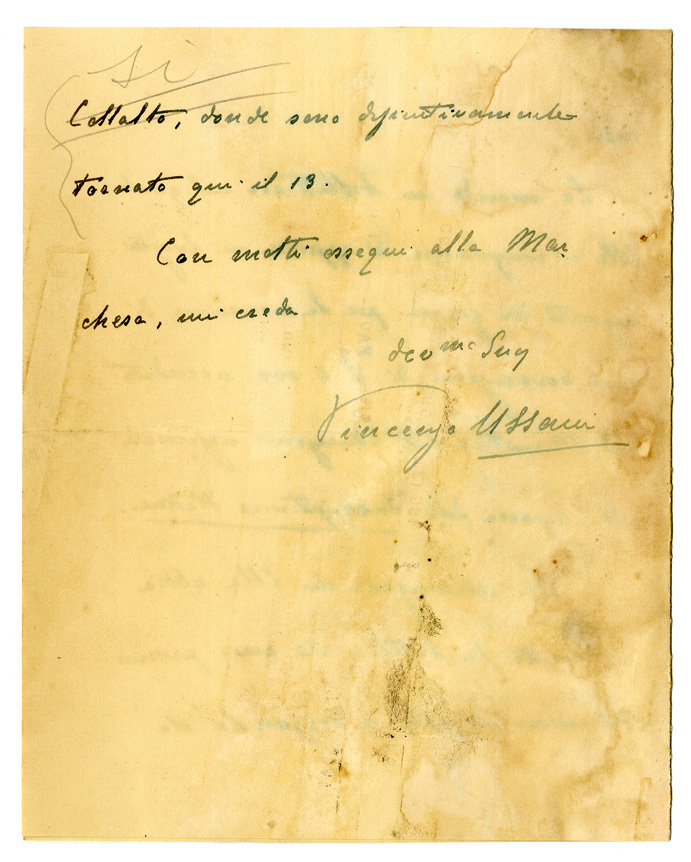 Sì
Collalto, donde sono definitivamente
tornato qui il 13.
Con molti ossequi alla Mar
chesa, mi creda
dev mo Suo
Vincenzo Ussani